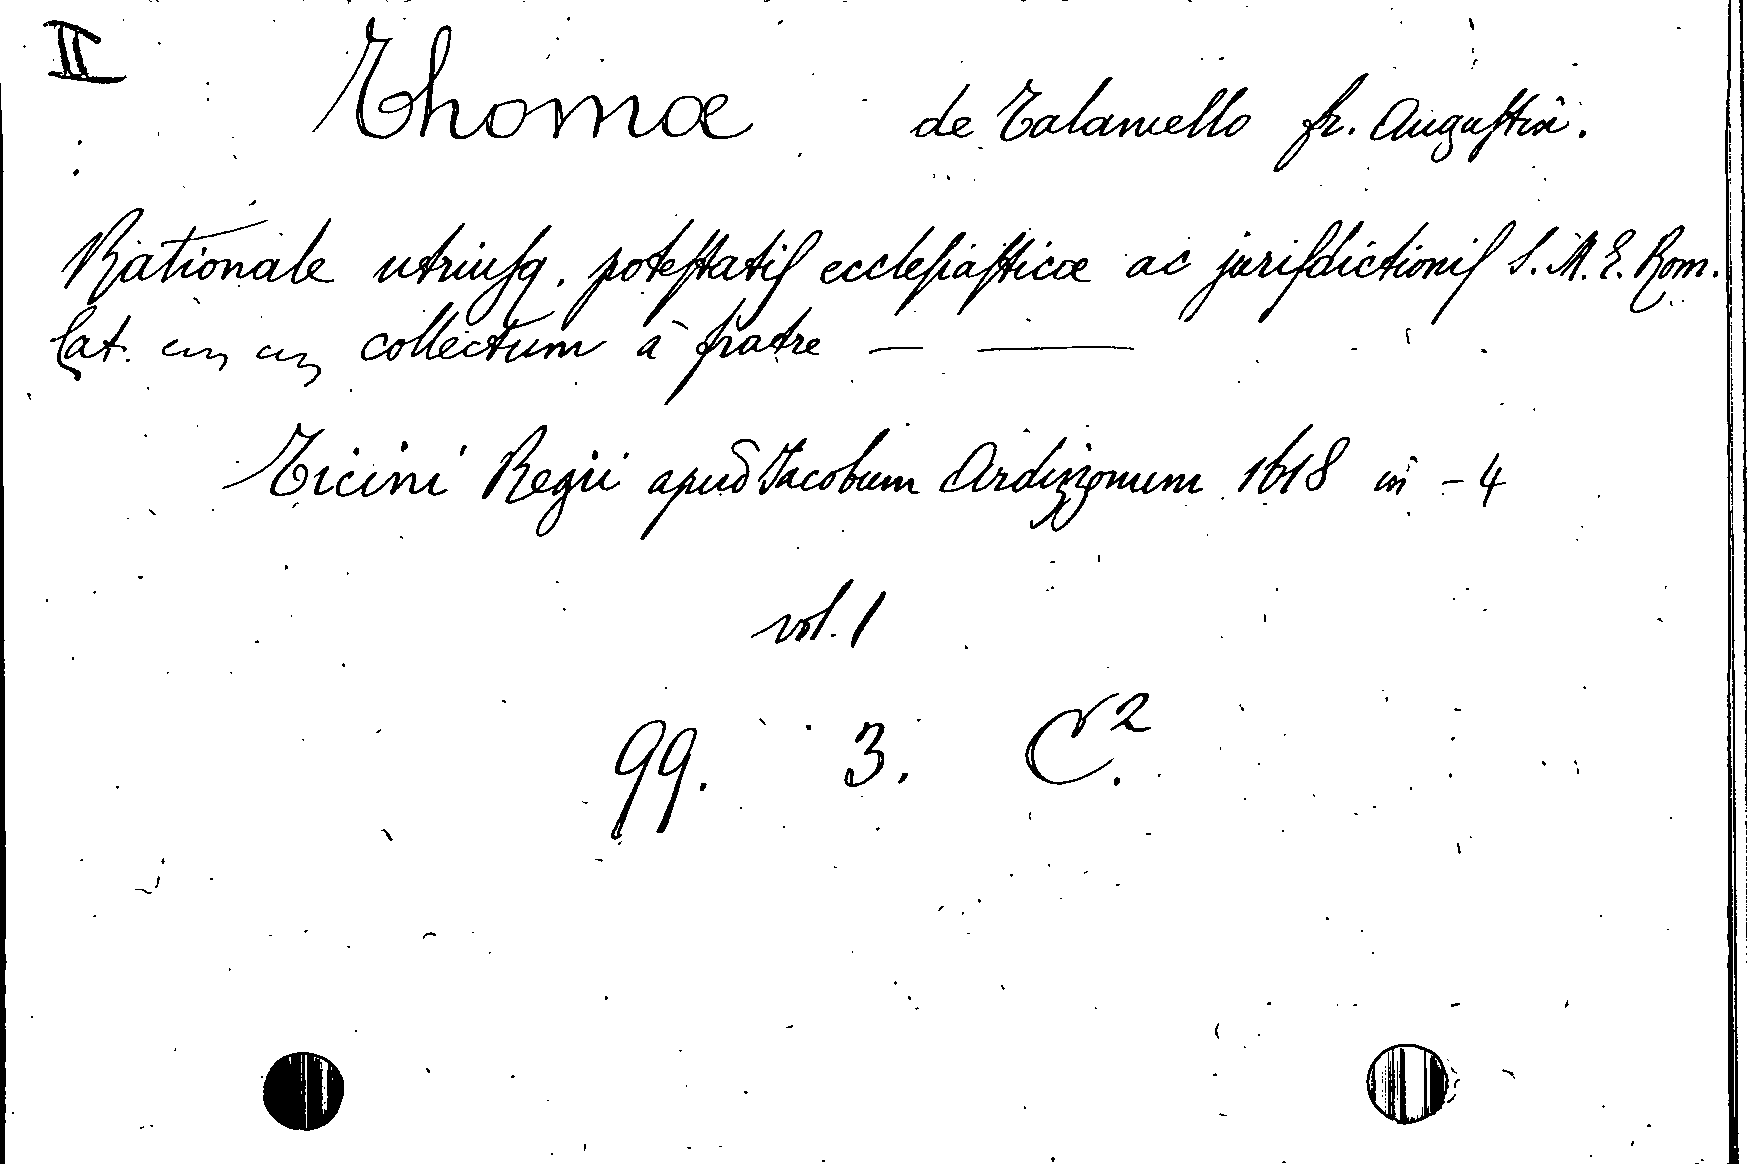 II
Thomæ de Talamello fr. Augustin.
Rationale utriusq. potestatis ecclesiasticæ ac jurisdictionis S. M. E. Rom.
Cat. collectum à fratre — —
Ticini Regii apud Jacobum Ardizzonum 1618 in - 4
vol. 1
99. 3. C².